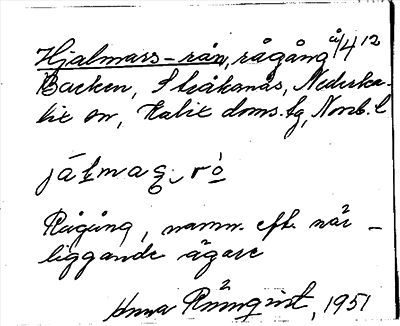 Hjalmars-rån, rågång å/4 12
Backen, Stråkanäs, Nederka-
lix sn, Kalix doms.lg, Norrb. l
Rågång, namn. eft. när-
liggande ägare
Anna Rönnqvist, 1951